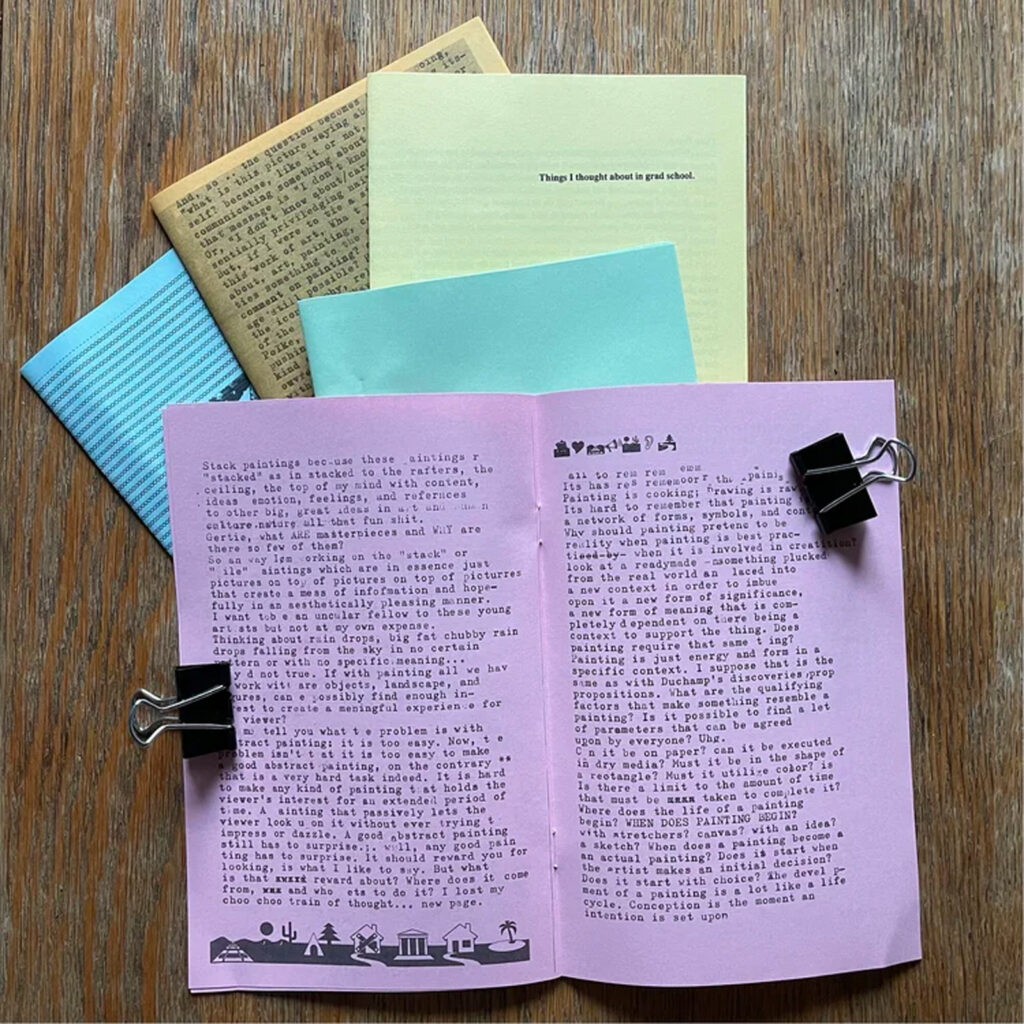 And, so ... the question becomes
"what is this picture saying
self? because, like it or not,
communicating something about
that message is "I don't kno
Or, "I don't know about/car
entially priviledging
But, if I were to tie
this work of art, Wha
about, art, painting,
ties something to the
comment on painting?
age still possible,
the ico
of the
Polke,
pushin
kind
own
Things I thought about in grad school.
Stack paintings because these aintings r
"stacked" as in stacked to the rafters, the
ceiling, the top of my mind with content,
ideas emotion, feelings, and refernces
to other big, great ideas in art and
culture.nature all that fun shit.
Gertie, what ARE masterpieces and WHY are
there so few of them?
So an way Iøm orking on the "stack" or
" ile" aintings which are in essence just
pictures on toy of pictures on top of pictures
that create a mess of infofmation and hope-
fully in an aesthetically pleasing manner.
I want tob e an uncular fellow to these young
art sts but not at my own expense.
Thinking about rain drops, big fat chubby rain
drops falling from the sky in no certain
ttern or with no specific meaning...
y d not true. If with painting all we hav
work wit are objects, landscape, and
gures, can e possibly find enough in-
est to create a meaningful experience for
viewer?
me tell you what t e problem is with
stract painting: it is too easy. Now, t e
problem isn't t at it is too easy to make
a good abstract painting, on the contrary **
that is a very hard task indeed. It is hard
to make any kind of painting that holds the
viewer's interest for an extended period of
time. A ainting that passively lets the
viewer look u on it without ever trying t
impress or dazzle. A good abstract painting
still has to surprise.;. well, any good pain
ting has to surprise. It should reward you for
looking, is what I like to say. But what
is that xxxxx reward about? Where does it come
from, xxx and who ets to do it? I lost my
choo choo train of thought... new page.
all to rem rem emm
Its has res rememoorr the pain
Painting is cooking; Drawing is raw
Its hard to remember that painting
a network of forms, symbols, and con
Why should painting pretend to be
reality when painting is best prac-
tised by- when it is involved in creatition?
look at a readymade -nsomething plucked
from the real world an laced into
a new context in order to imbue
upon it a new form of significance,
a new form of meaning that is com-
pletely d ependent on there being a
context to support the thing. Does
painting require that same t ing?
Painting is just energy and form in a
specific context. I suppose that is the
same as with Duchamp's discoveries/prop
propositions. What are the qualifying
factors that make something resemble a
painting? Is it possible to find a lot
of parameters that can be agreed
upon by everyone? Uhg.
C n it be on paper? can it be executed
in dry media? Must it be in the shape of
a rectangle? Must it utilize color? is
Is there a limit to the amount of time
that must be xxxx taken to complete it?
Where does the life of a painting
begin? WHEN DOES PAINTING BEGIN?
with stretchers? canvas? with an idea?
a sketch? When does a painting become a
an actual painting? Does it start when
the artist makes an initial decision?
Does it start with choice? The devel p-
ment of a painting is a lot like a life
cycle. Conception is the moment an
intention is set upon